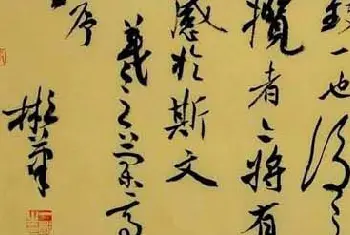 致一也後之
攬者亦將有
感於斯文
羲之蘭亭
序